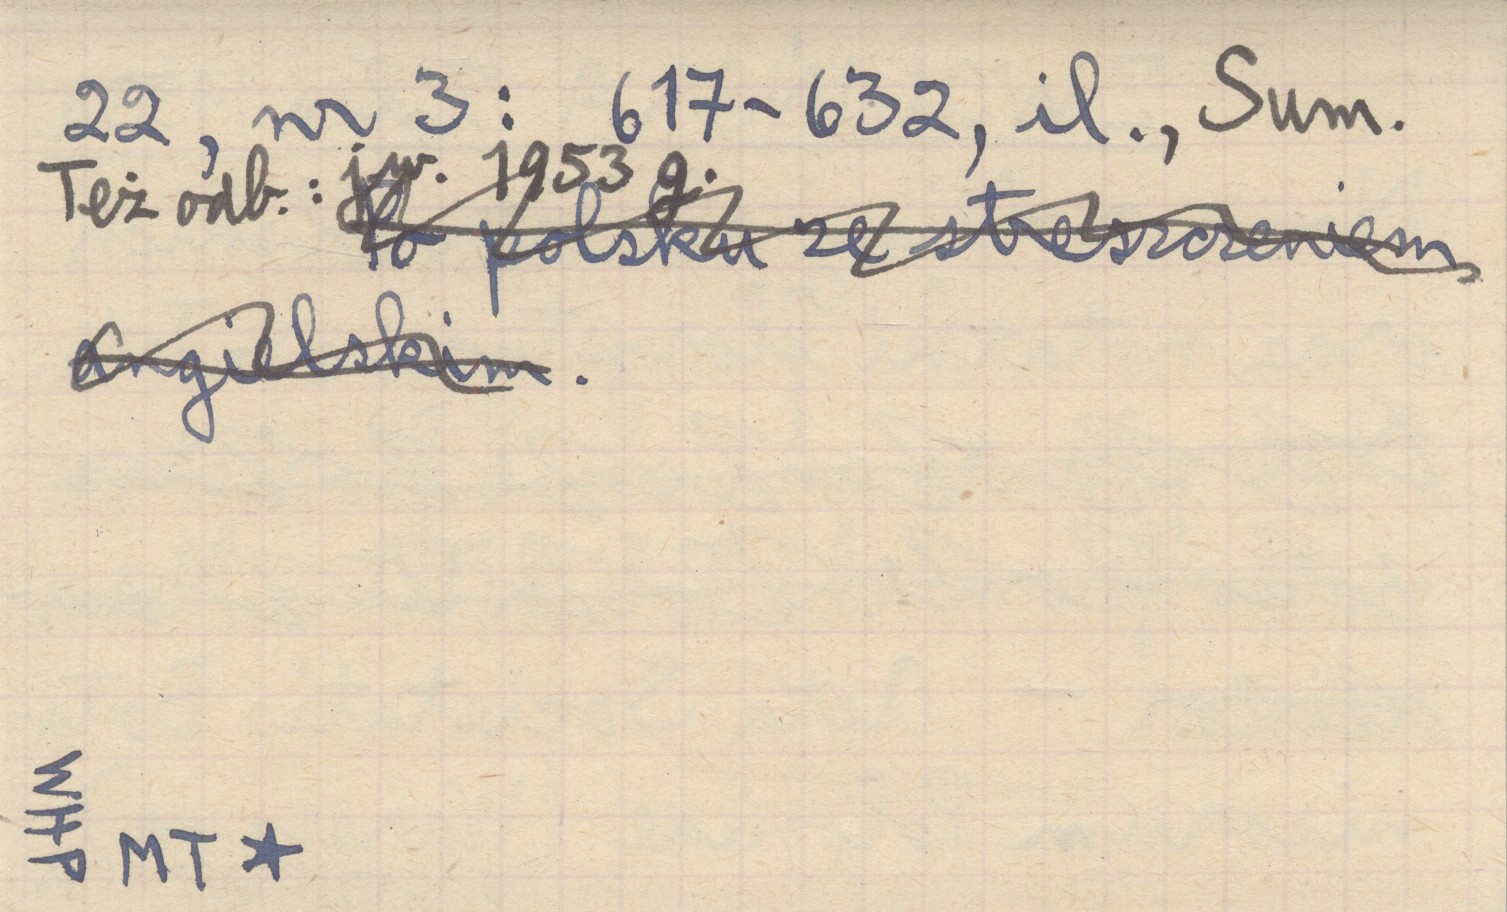 22, nr 3: 617-632, il., Sum.
Też odb.: jw. 1953 g.
Po polsku ze streszczeniem
angielskim.
WHP
MT ★